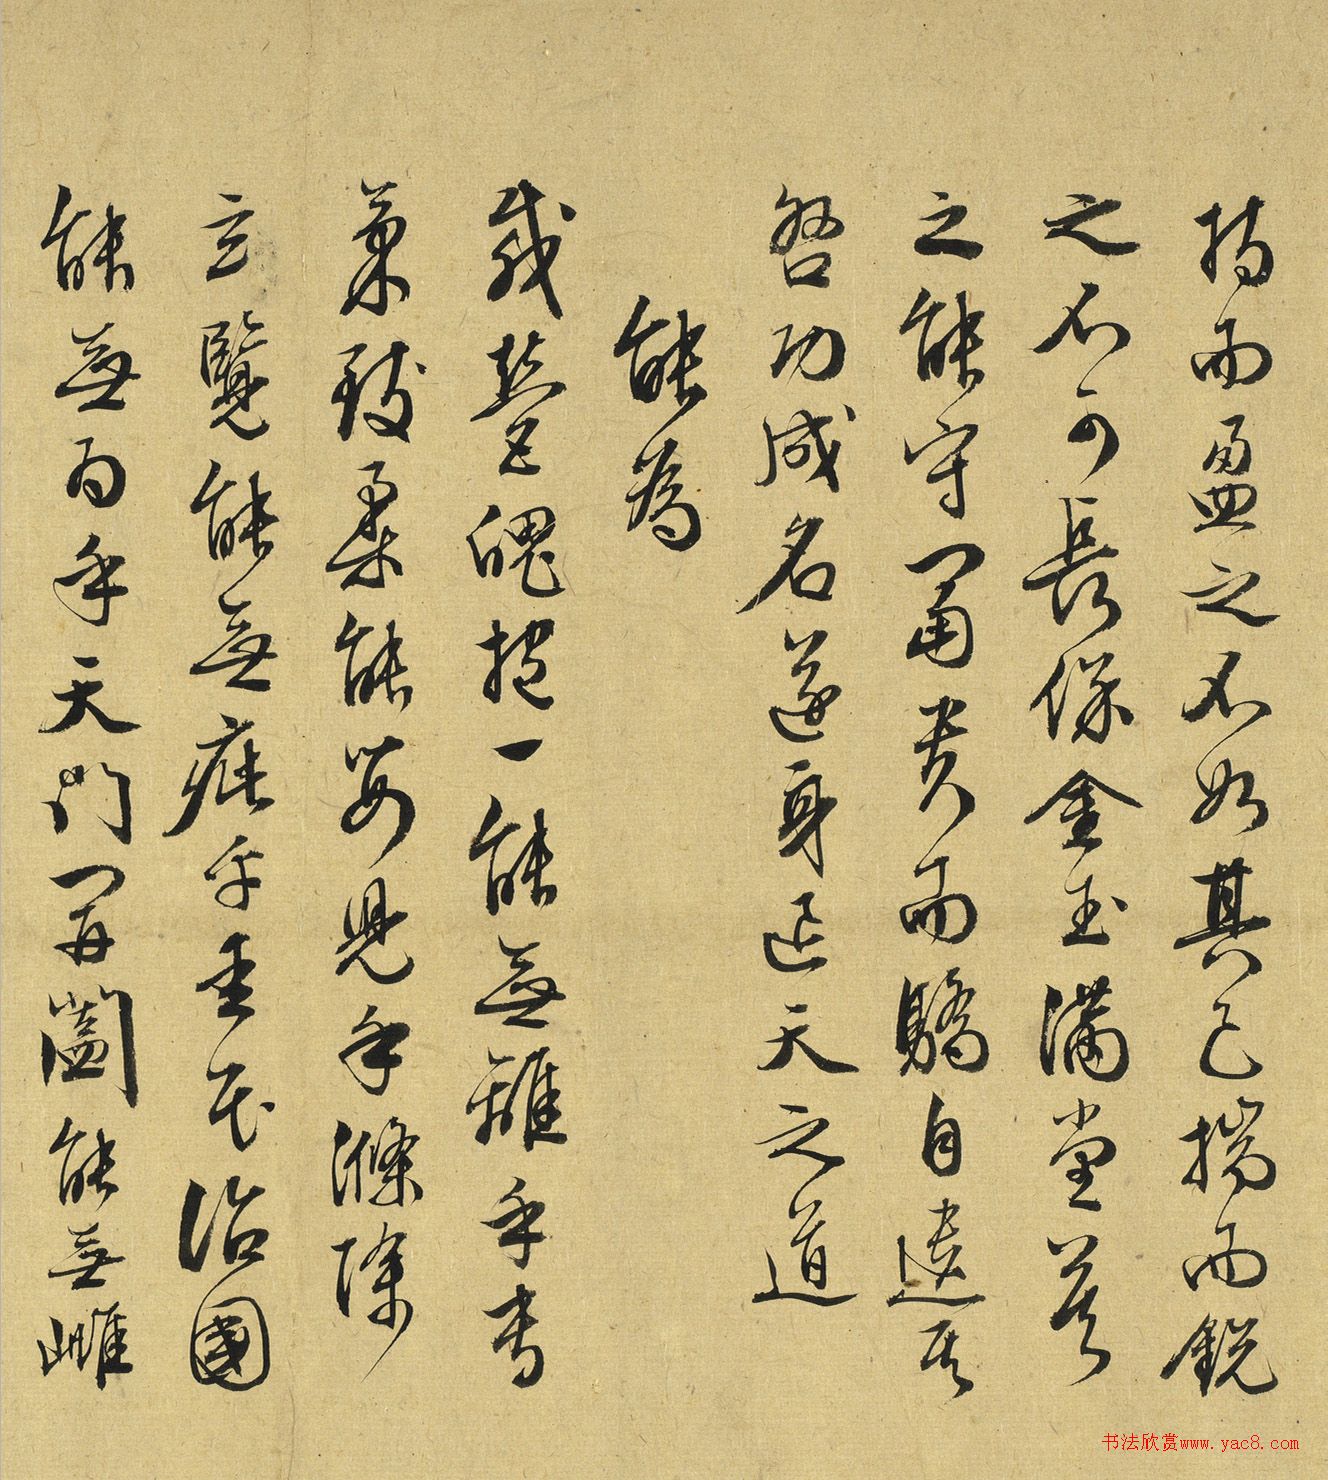 持而盈之不如其已揣而銳
之不可長保金玉滿堂莫
之能守富貴而驕自遺其
咎功成名遂身退天之道
能為
載營魄抱一能無離乎專
氣致柔能嬰兒乎滌除
玄覽能無疵乎愛民治國
能無為乎天門開闔能無雌
书法欣赏www.yac8.com